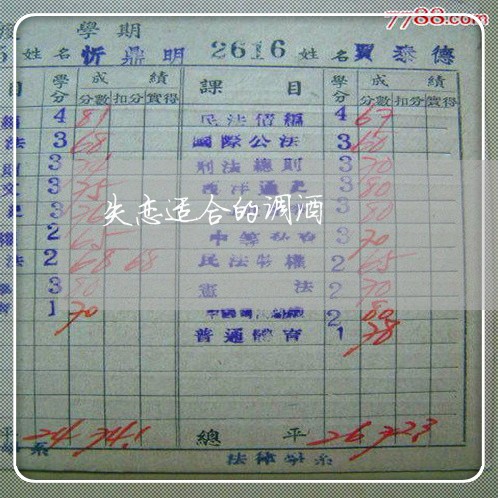 7788.com
學期
姓名 忻鼎明 2616 姓名 賈泰德
目 學分 成績 課目 學分 成績
分數 扣分 實得 分數 扣分 實得
4 81 民法債編 4 67
法 3 68 國際公法 3 60
3 刑法總則 3 70
3 75 西洋通史 3 80
3 3 80
失恋适合的调酒
權 2 65 3 70
法 2 68 68 民法物權 2 65
3 80 憲法 2 70
1 70 2 80
普通體育 1 78
平 24 74.1 總平 26 72.3
系 法律學系